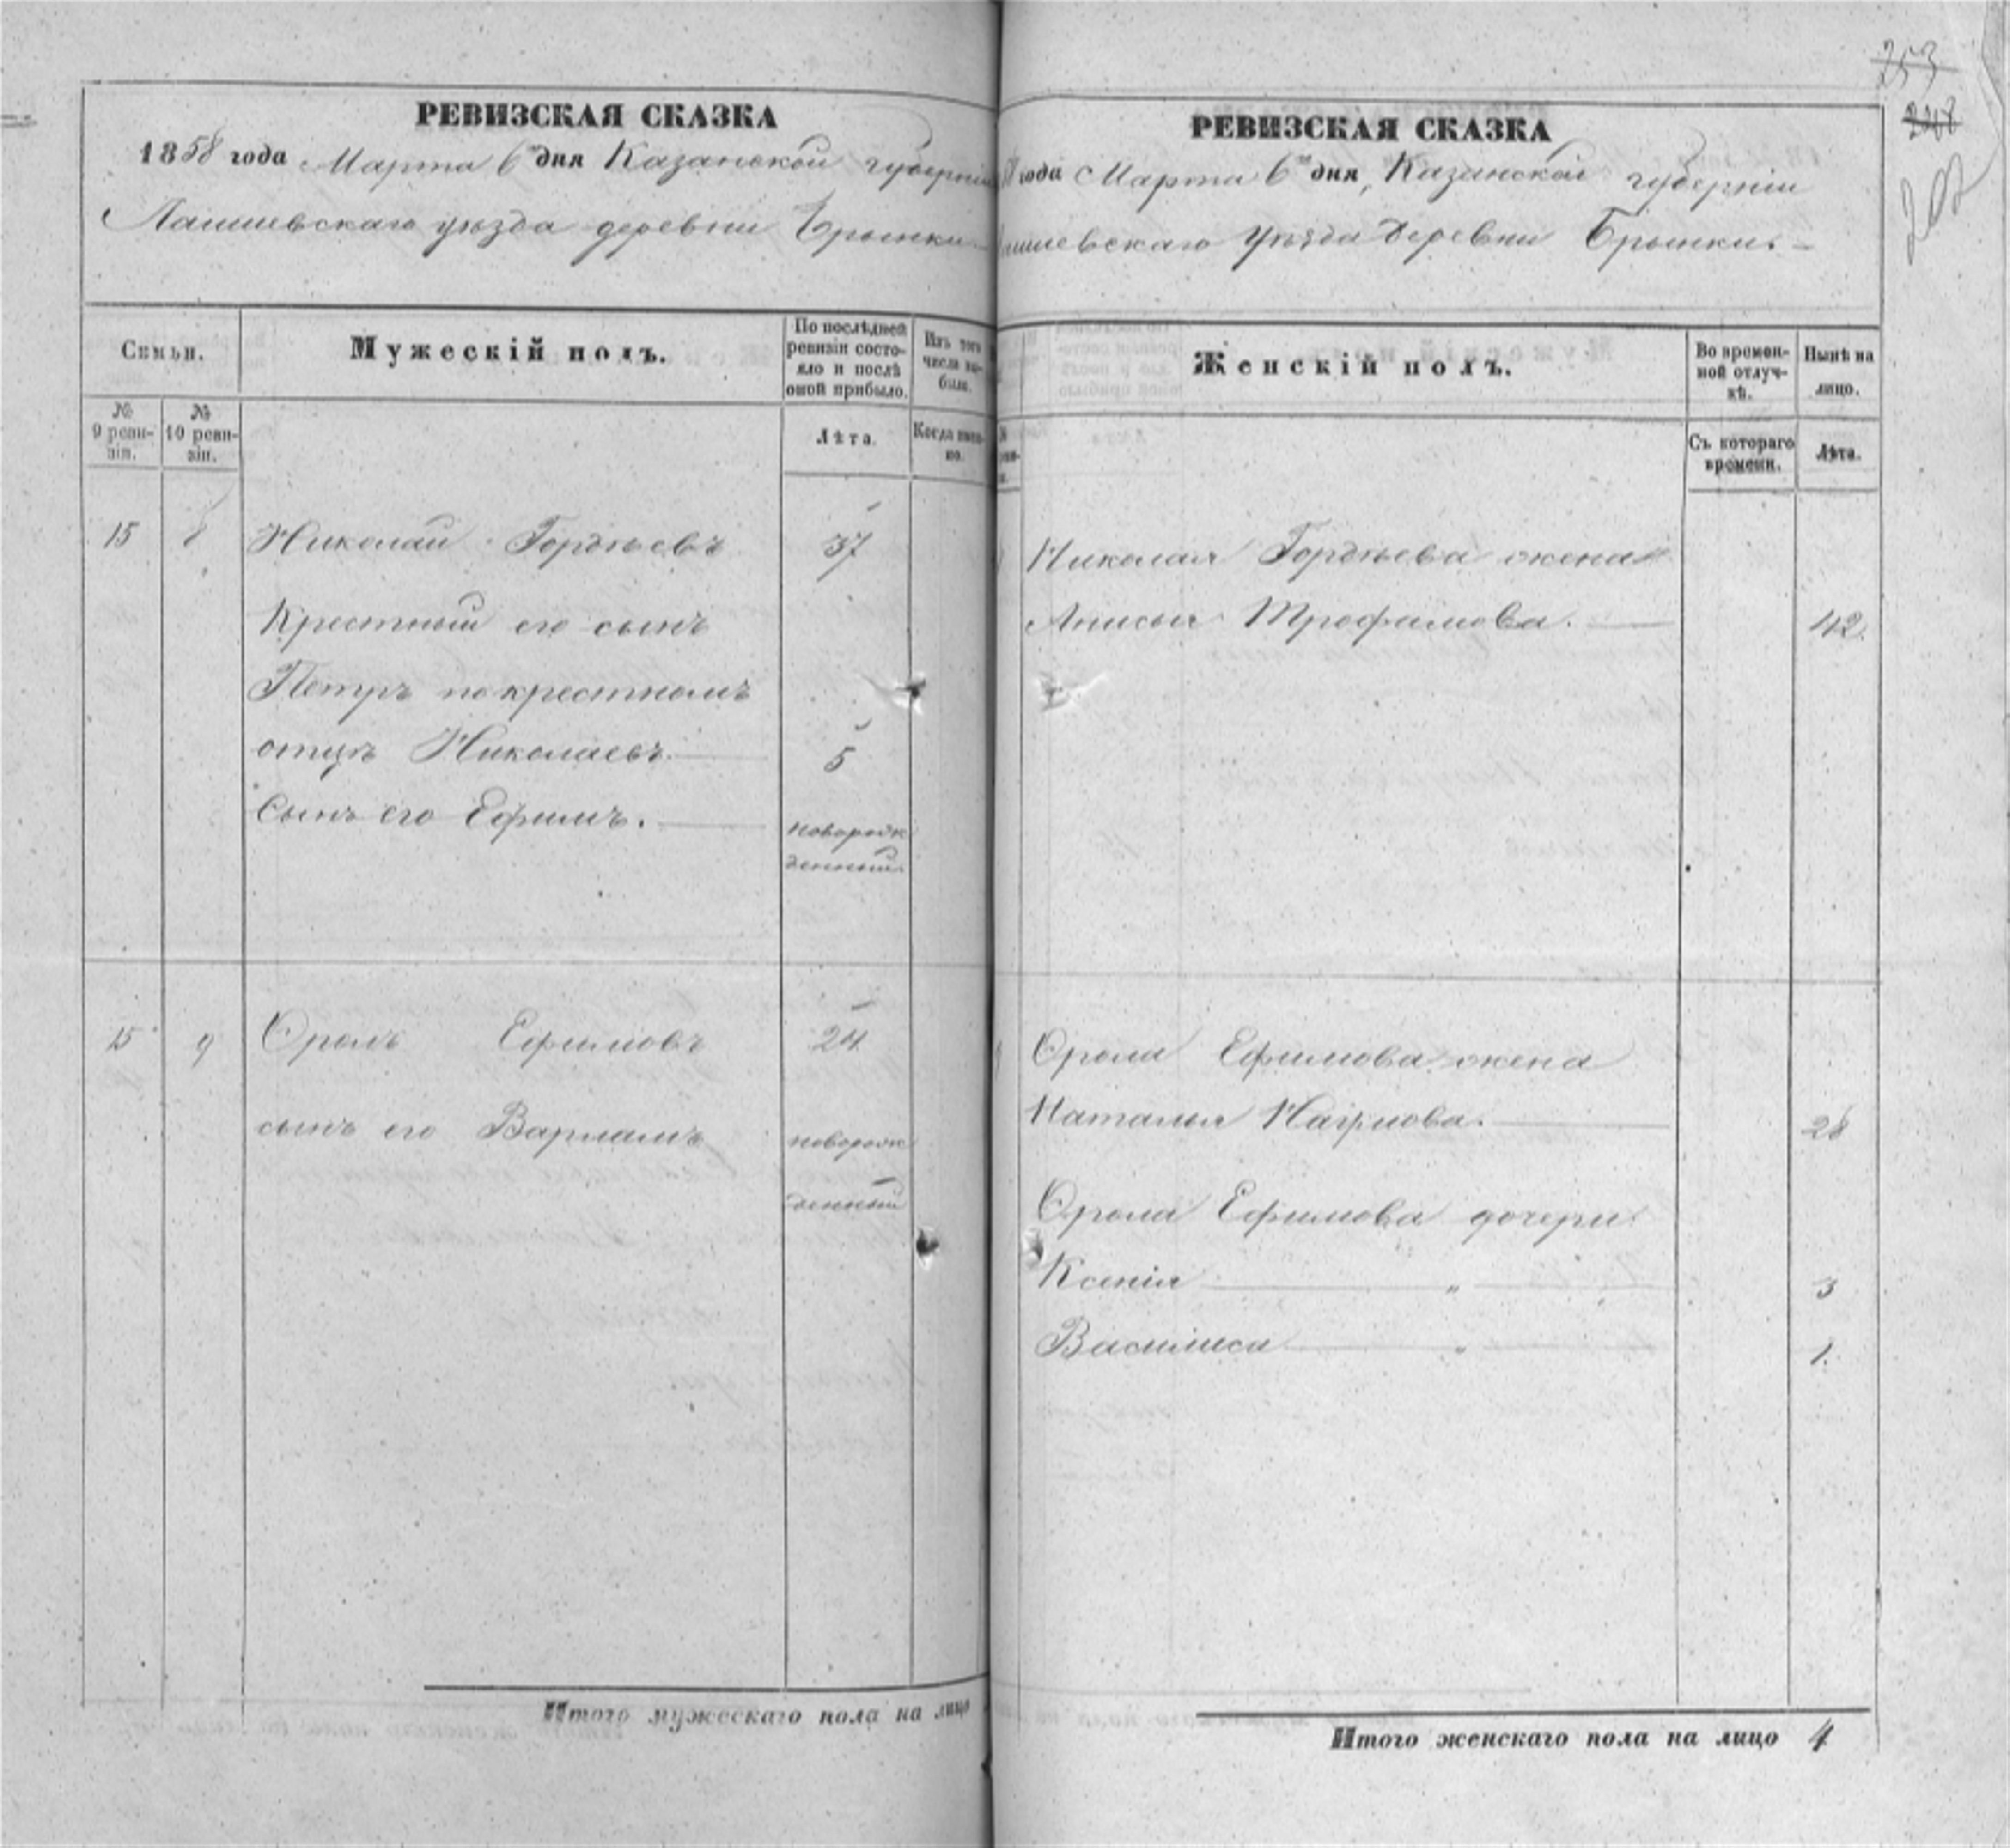 РЕВИЗСКАЯ СКАЗКА
1858 года Марта 6го дня Казанской губерніи
Лаишевскаго уѣзда деревни Брынки
Семьи.
Мужескій полъ.
По послѣдней ревизіи состояло и послѣ оной прибыло.
Изъ того числа выбыло.
№ 9 ревизіи.
№ 10 ревизіи.
Лѣта.
Когда именно.
15 8 Николай Гордѣевъ 37
Крестный его сынъ
Петръ по крестномъ
отцѣ Николаевъ. 5
Сынъ его Ефимъ. новорож
денный
15 9 Фролъ Ефимовъ 24
сынъ его Варламъ новорож
денный
Итого мужескаго пола на лицо
253
248
207
РЕВИЗСКАЯ СКАЗКА
года Марта 6го дня, Казанской губерніи
ишевскаго Уѣзда Деревни Брынки.
Женскій полъ.
Во временной отлучкѣ.
Нынѣ на лицо.
Съ котораго времени.
Лѣта.
Николая Гордѣева жена
Анисья Трофимова. 42.
Фрола Ефимова жена
Наталья Наумова. 28
Фрола Ефимова дочери
Ксенія " 3
Василиса " 1.
Итого женскаго пола на лицо 4